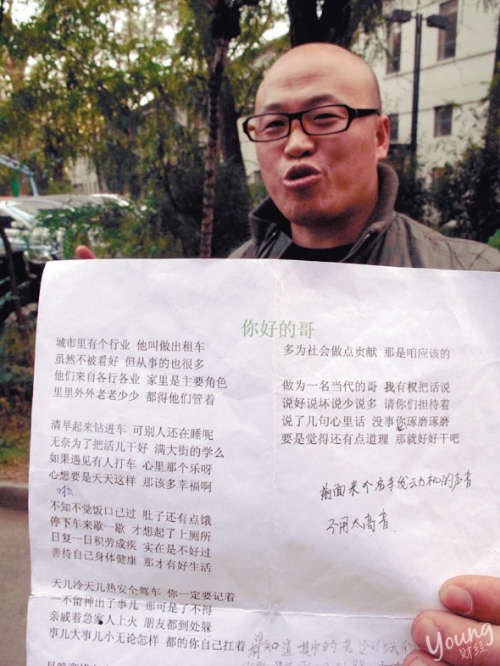 你好的哥
城市里有个行业 他叫做出租车
虽然不被看好 但从事的也很多
他们来自各行各业 家里是主要角色
里里外外老老少少 都得他们管着
清早起来钻进车 可别人还在睡呢
无奈为了把活儿干好 满大街的学么
如果遇见有人打车 心里那个乐呀
心想要是天天这样 那该多幸福啊
不知不觉饭口已过 肚子还有点饿
停下车来歇一歇 才想起了上厕所
日复一日积劳成疾 实在是不好过
善待自己身体健康 那才有好生活
天儿冷天儿热安全驾车 你一定要记着
一不留神出了事儿 那可是了不得
亲戚着急家人上火 朋友都到处躲
事儿大事儿小无论怎样 都的你自己扛着
多为社会做点贡献 那是咱应该的
做为一名当代的哥 我有权把话说
说好说坏说少说多 请你们担待着
说了几句心里话 没事你琢磨琢磨
要是觉得还有点道理 那就好好干吧
前面来个
的声音
不用太高音
Young
财经